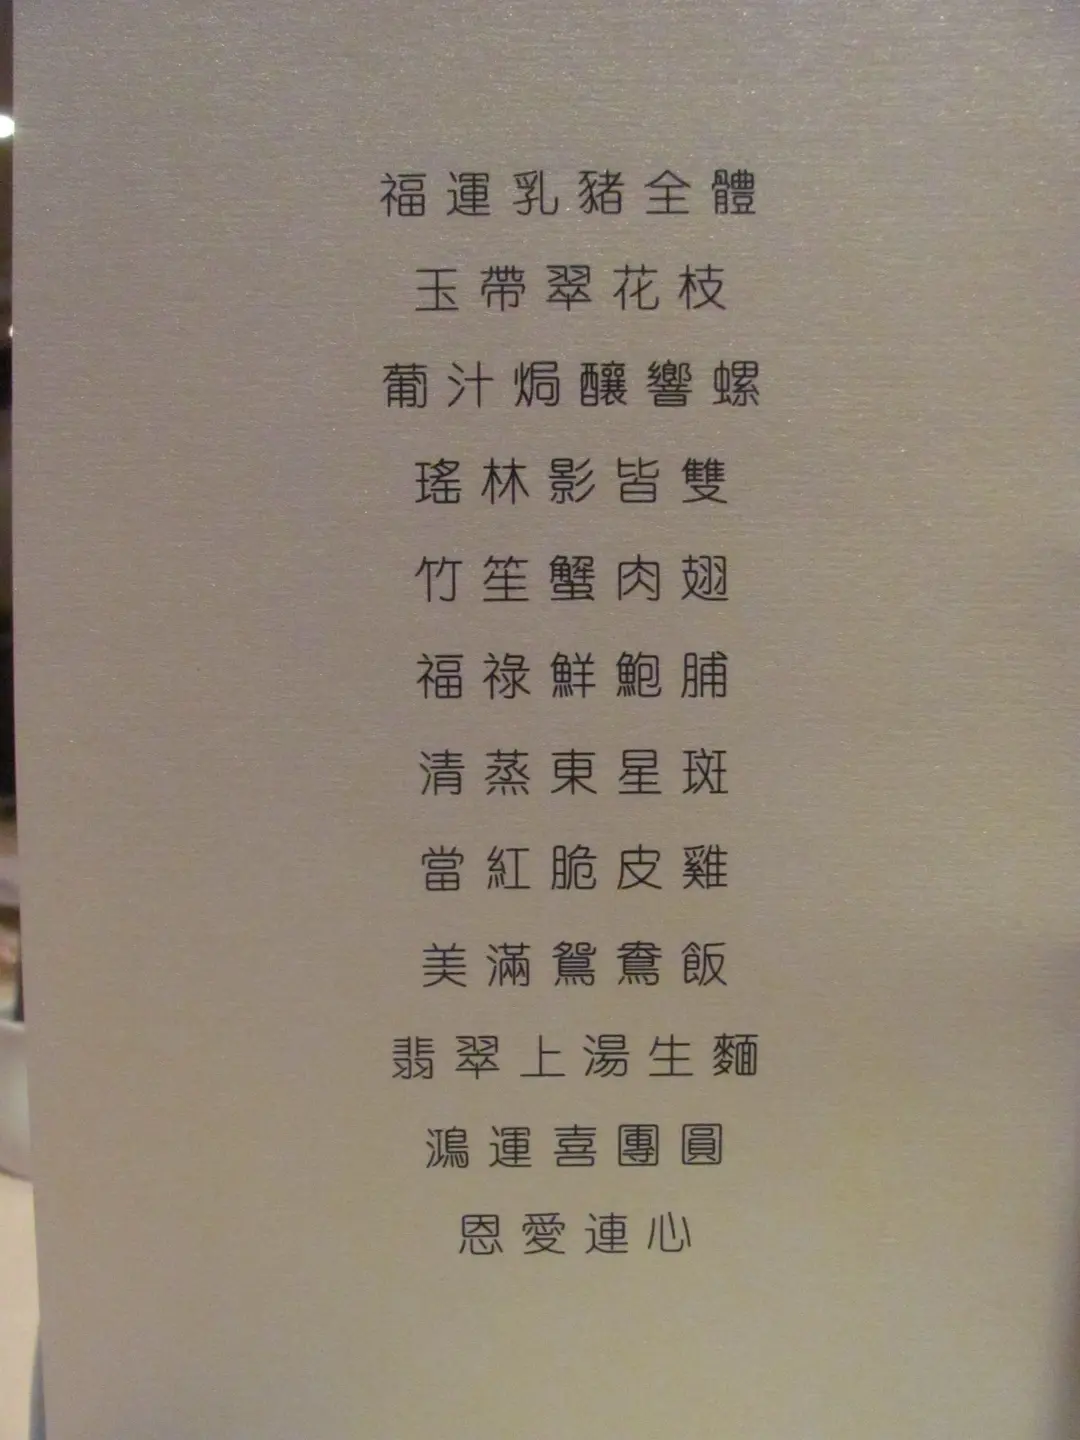 福運乳豬全體
玉帶翠花枝
葡汁焗釀響螺
瑤林影皆雙
竹笙蟹肉翅
福祿鮮鮑脯
清蒸東星斑
當紅脆皮雞
美滿鴛鴦飯
翡翠上湯生麵
鴻運喜團圓
恩愛連心